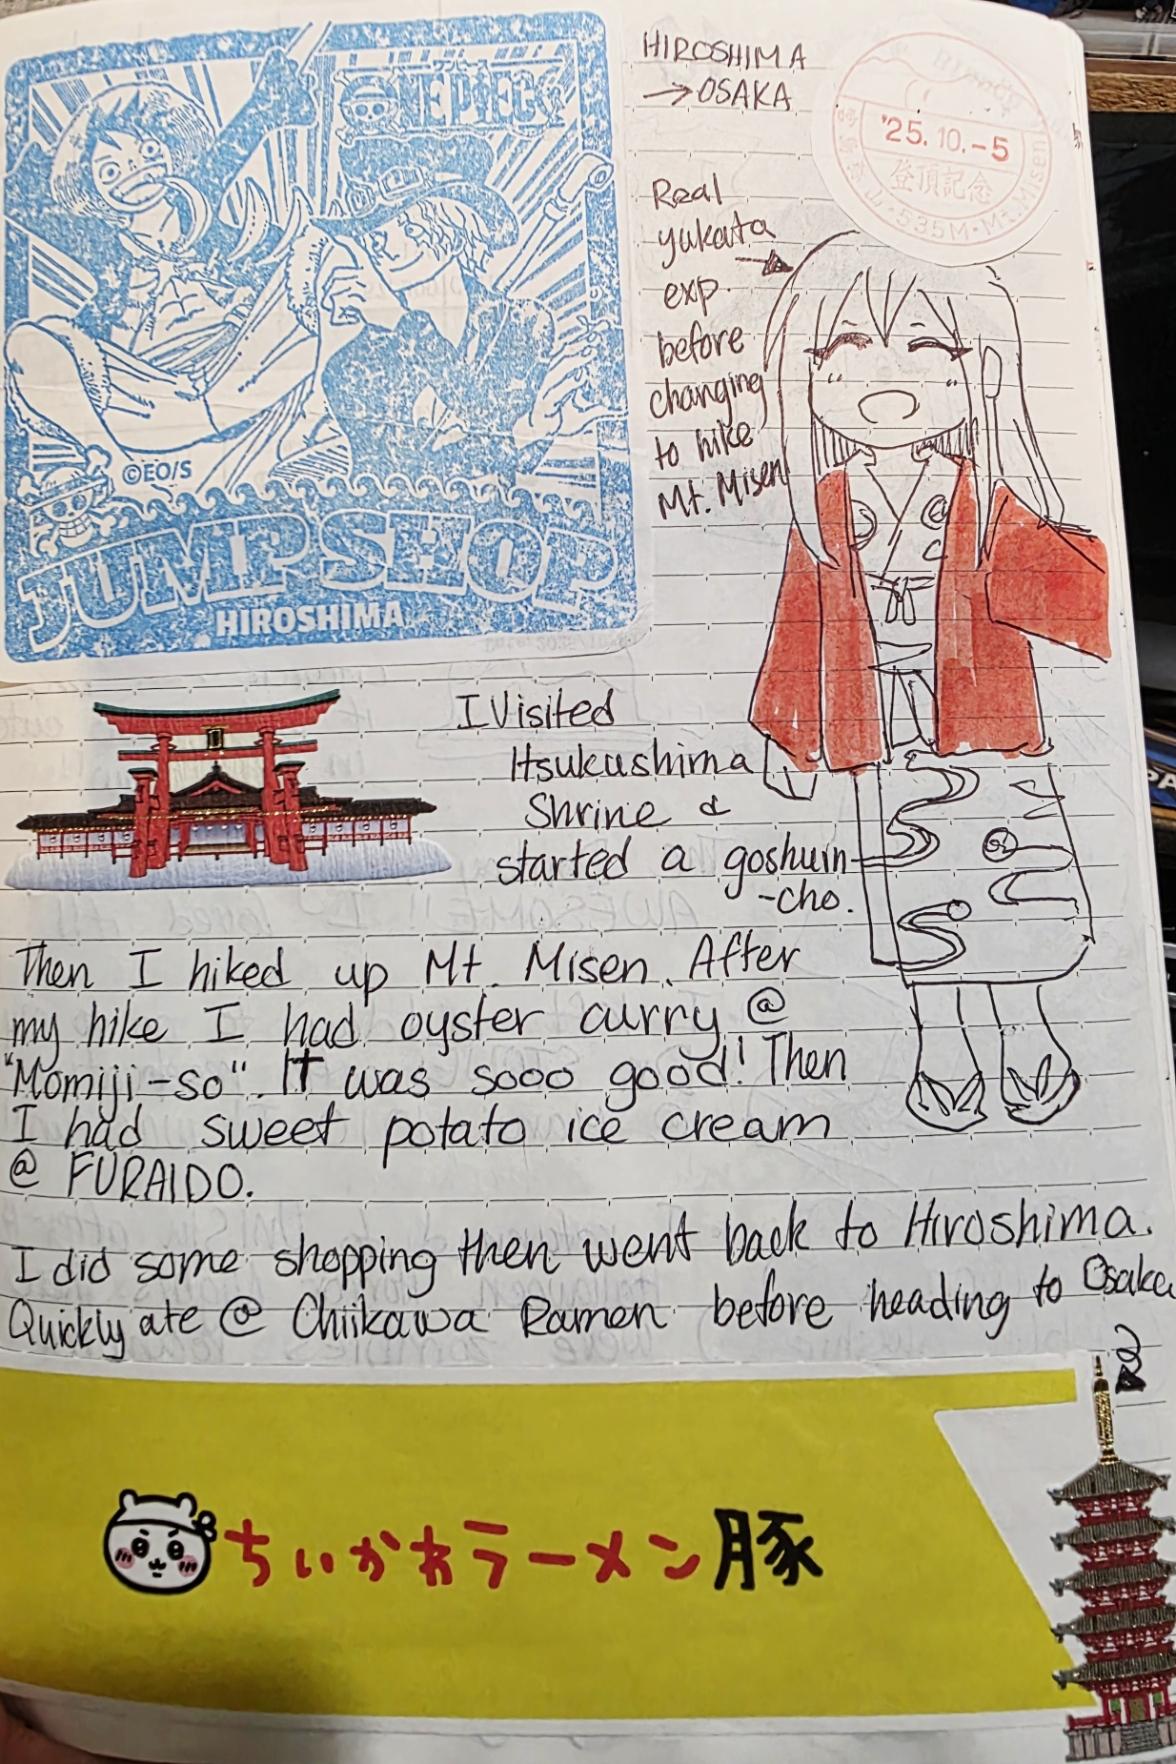 ワンピース
ONE PIECE
©EO/S
JUMP SHOP
HIROSHIMA
HIROSHIMA
→ OSAKA
'25.10.-5
登頂記念
535M・Mt.Misen
Real
yukata
exp.
before
changing
to hike
Mt. Misen
I Visited
Itsukushima
Shrine &
started a goshuin
-cho.
Then I hiked up Mt. Misen. After
my hike I had oyster curry @
"Momiji-so". It was sooo good! Then
I had sweet potato ice cream
@ FURAIDO.
I did some shopping then went back to Hiroshima.
Quickly ate @ Chiikawa Ramen before heading to Osaka
ちいかわラーメン豚